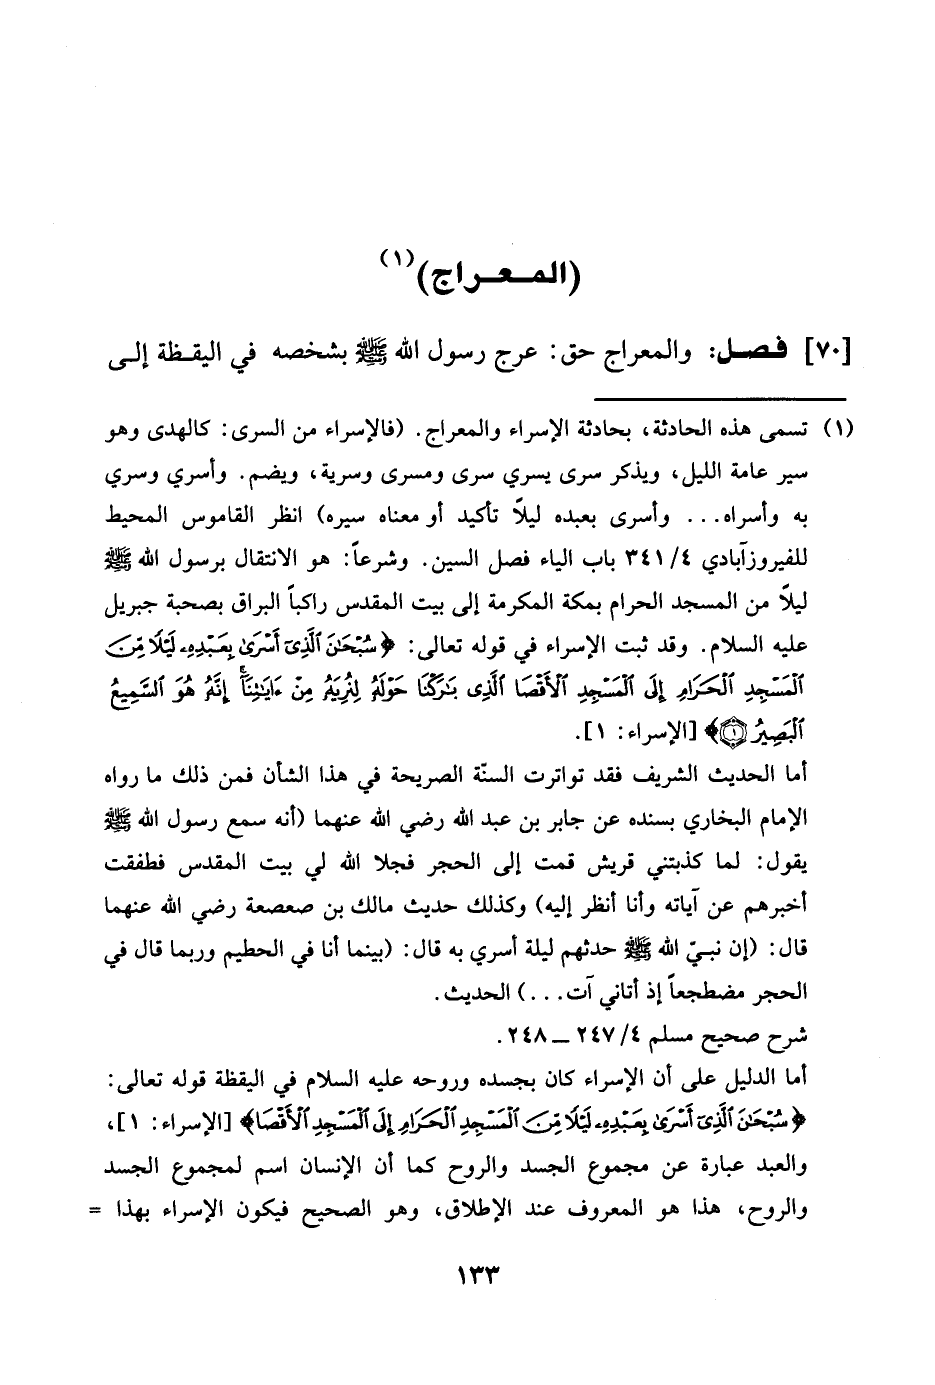 (المـعـراج)(١)
[٧٠] فصل: والمعراج حق: عرج رسول الله ﷺ بشخصه في اليقظة إلى
(١) تسمى هذه الحادثة، بحادثة الإسراء والمعراج. (فالإسراء من السرى: كالهدى وهو
سير عامة الليل، ويذكر سرى يسري سرى ومسرى وسرية، ويضم. وأسري وسري
به وأسراه... وأسرى بعبده ليلاً تأكيد أو معناه سيره) انظر القاموس المحيط
للفيروزآبادي ٣٤١/٤ باب الياء فصل السين. وشرعاً: هو الانتقال برسول الله ﷺ
ليلاً من المسجد الحرام بمكة المكرمة إلى بيت المقدس راكباً البراق بصحبة جبريل
عليه السلام. وقد ثبت الإسراء في قوله تعالى: ﴿سُبْحَٰنَ ٱلَّذِىٓ أَسْرَىٰ بِعَبْدِهِۦ لَيْلًا مِّنَ
ٱلْمَسْجِدِ ٱلْحَرَامِ إِلَى ٱلْمَسْجِدِ ٱلْأَقْصَا ٱلَّذِى بَٰرَكْنَا حَوْلَهُۥ لِنُرِيَهُۥ مِنْ ءَايَٰتِنَآ ۚ إِنَّهُۥ هُوَ ٱلسَّمِيعُ
ٱلْبَصِيرُ ۝١﴾ [الإسراء: ١].
أما الحديث الشريف فقد تواترت السنّة الصريحة في هذا الشأن فمن ذلك ما رواه
الإمام البخاري بسنده عن جابر بن عبد الله رضي الله عنهما (أنه سمع رسول الله ﷺ
يقول: لما كذبتني قريش قمت إلى الحجر فجلا الله لي بيت المقدس فطفقت
أخبرهم عن آياته وأنا أنظر إليه) وكذلك حديث مالك بن صعصعة رضي الله عنهما
قال: (إن نبيّ الله ﷺ حدثهم ليلة أسري به قال: (بينما أنا في الحطيم وربما قال في
الحجر مضطجعاً إذ أتاني آت...) الحديث.
شرح صحيح مسلم ٢٤٧/٤ ـ ٢٤٨.
أما الدليل على أن الإسراء كان بجسده وروحه عليه السلام في اليقظة قوله تعالى:
﴿سُبْحَٰنَ ٱلَّذِىٓ أَسْرَىٰ بِعَبْدِهِۦ لَيْلًا مِّنَ ٱلْمَسْجِدِ ٱلْحَرَامِ إِلَى ٱلْمَسْجِدِ ٱلْأَقْصَا﴾ [الإسراء: ١]،
والعبد عبارة عن مجموع الجسد والروح كما أن الإنسان اسم لمجموع الجسد
والروح، هذا هو المعروف عند الإطلاق، وهو الصحيح فيكون الإسراء بهذا =
١٣٣